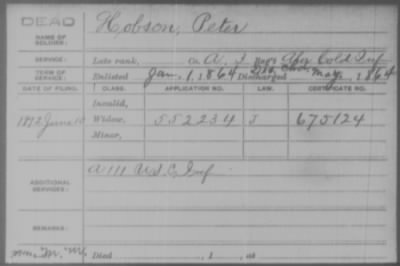 DEAD
NAME OF SOLDIER:
Hobson, Peter
SERVICE:
Late rank, Co. A, Reg't Cold Inf
TERM OF SERVICE:
Enlisted Jan. 1, 1864 Discharged May, 1864
DATE OF FILING. CLASS. APPLICATION NO. LAW. CERTIFICATE NO.
Invalid,
1892 June 10 Widow, 552234 J 675124
Minor,
ADDITIONAL SERVICES:
A 111 U.S.C. Inf
REMARKS:
Died , 1 , at